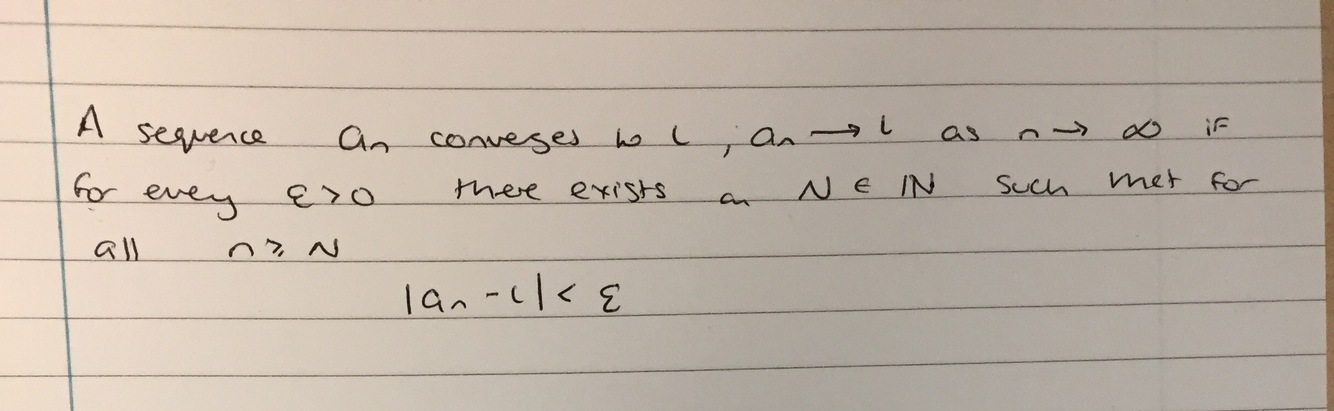 A sequence aₙ converges to l, aₙ → l as n → ∞ if
for every ε > 0 there exists an N ∈ ℕ such that for
all n ≥ N
|aₙ - l| < ε